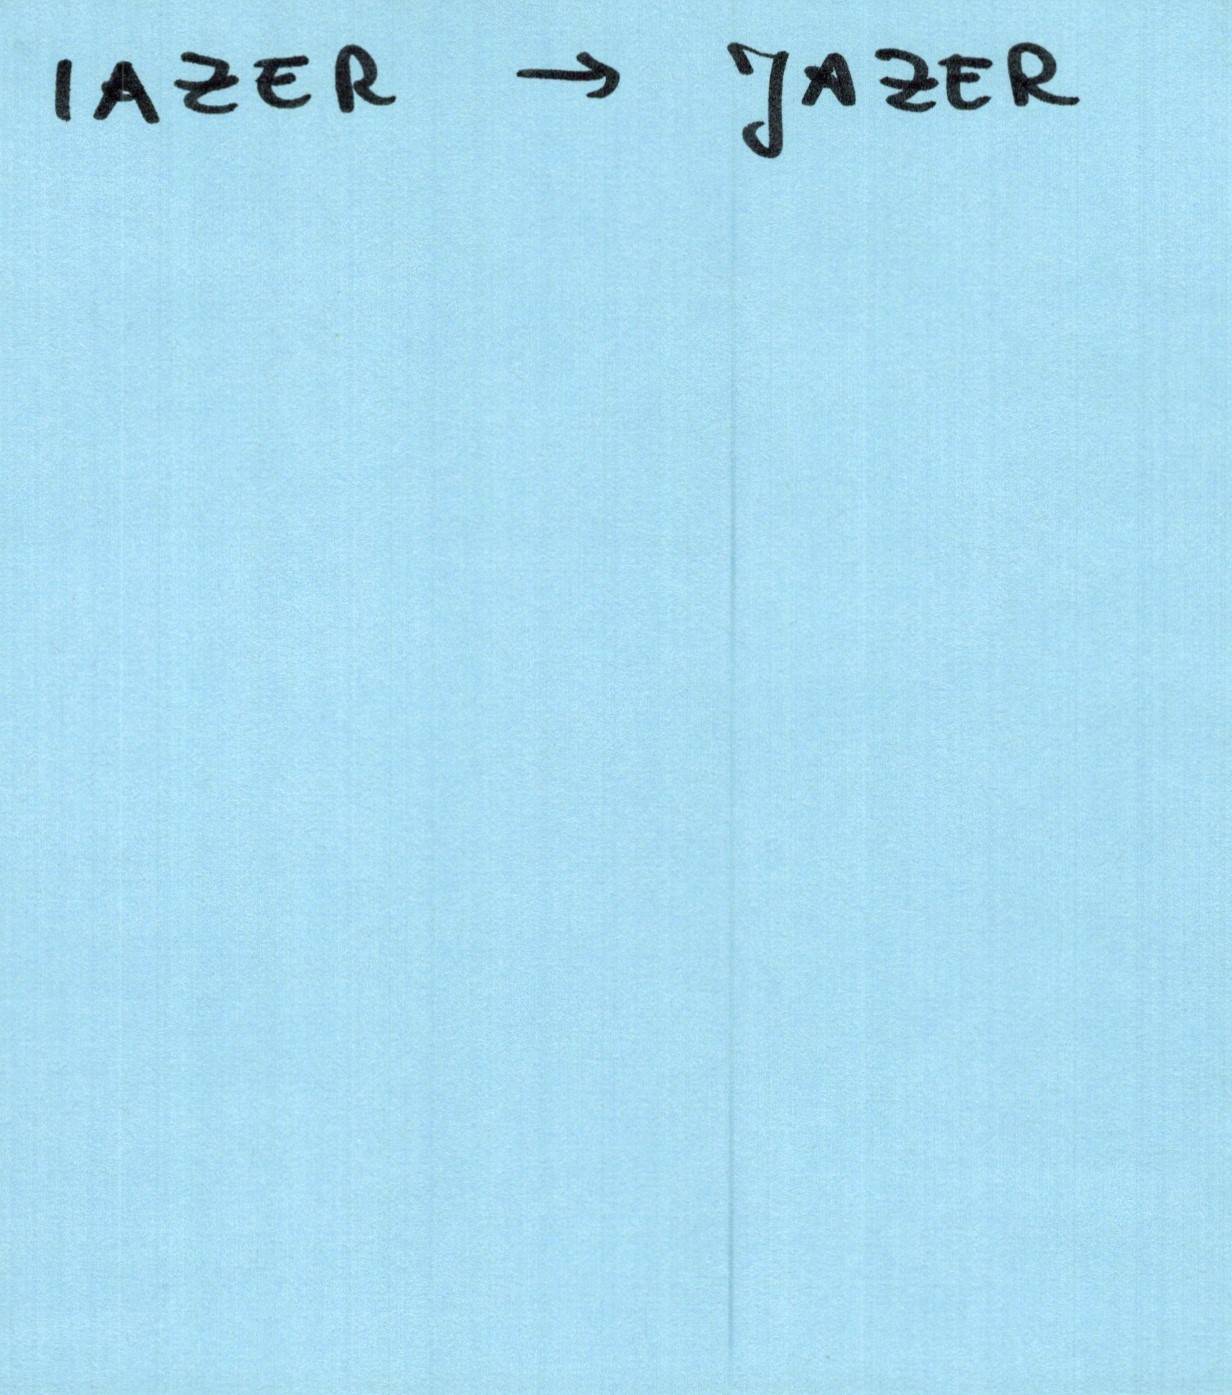 IAZER → JAZER